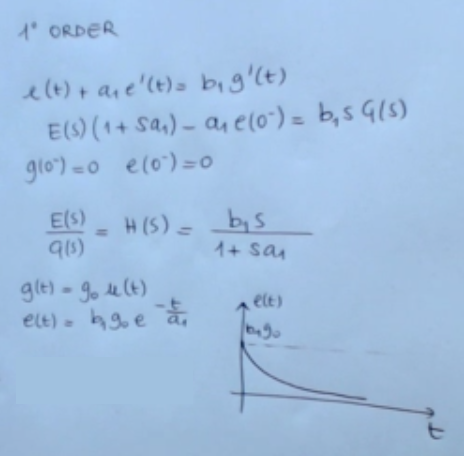 1° ORDER
e(t) + a₁e'(t) = b₁g'(t)
E(s)(1 + sa₁) - a₁e(0⁻) = b₁s G(s)
g(0⁻) = 0 e(0⁻) = 0
E(s)/G(s) = H(s) = b₁s/(1 + sa₁)
g(t) = g₀ u(t)
e(t) = b₁g₀ e^(-t/a₁)
e(t)
b₁g₀
t